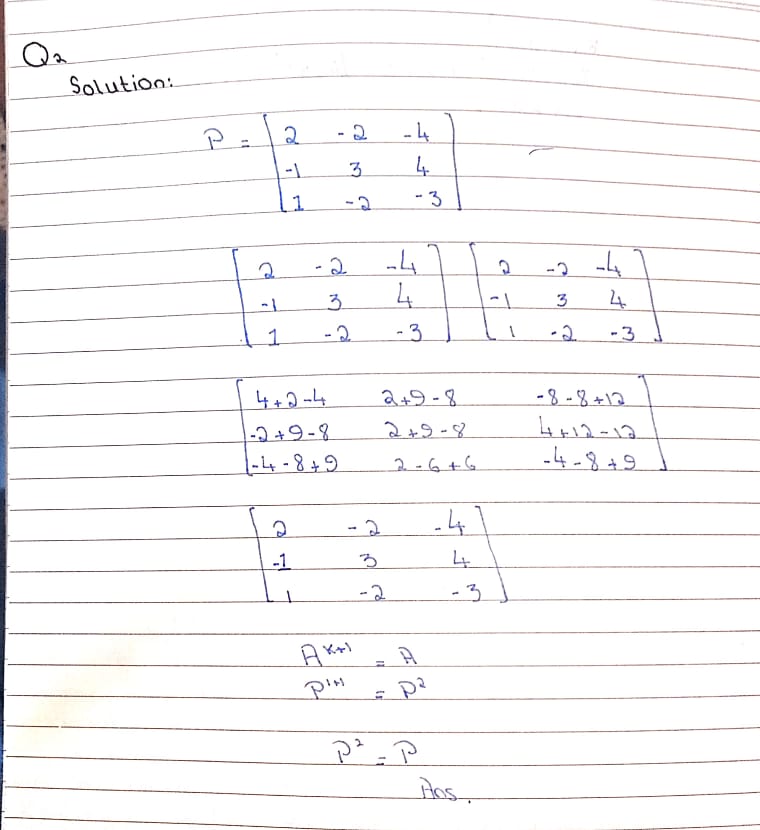 Q2
Solution:
P = [ 2 -2 -4
-1 3 4
1 -2 -3 ]
[ 2 -2 -4 ] [ 2 -2 -4 ]
-1 3 4 -1 3 4
1 -2 -3 1 -2 -3
4+2-4 2+9-8 -8-8+12
-2+9-8 2+9-8 4+12-12
-4-8+9 2-6+6 -4-8+9
2 -2 -4
-1 3 4
1 -2 -3
A^{K+1} = A
P^{1+1} = P²
P² = P
Ans.